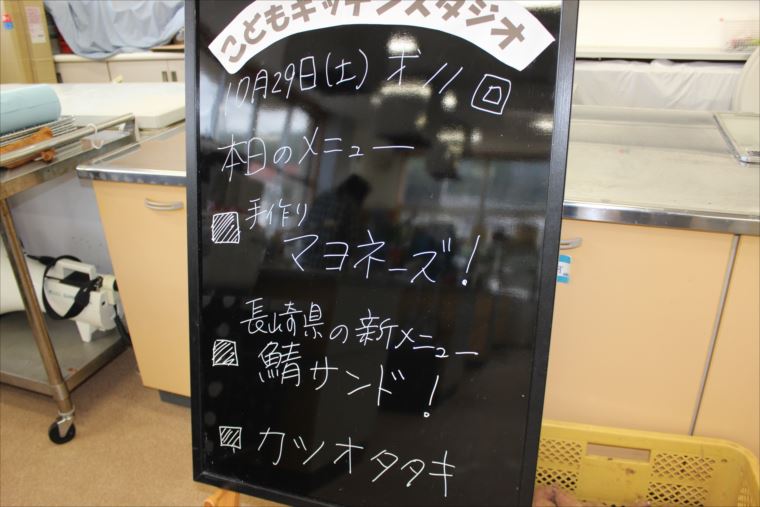 こどもキッチンスタジオ
10月29日(土) 才11回
本日のメニュー
手作り
マヨネーズ!
長崎県の新メニュー
鯖サンド!
カツオタタキ